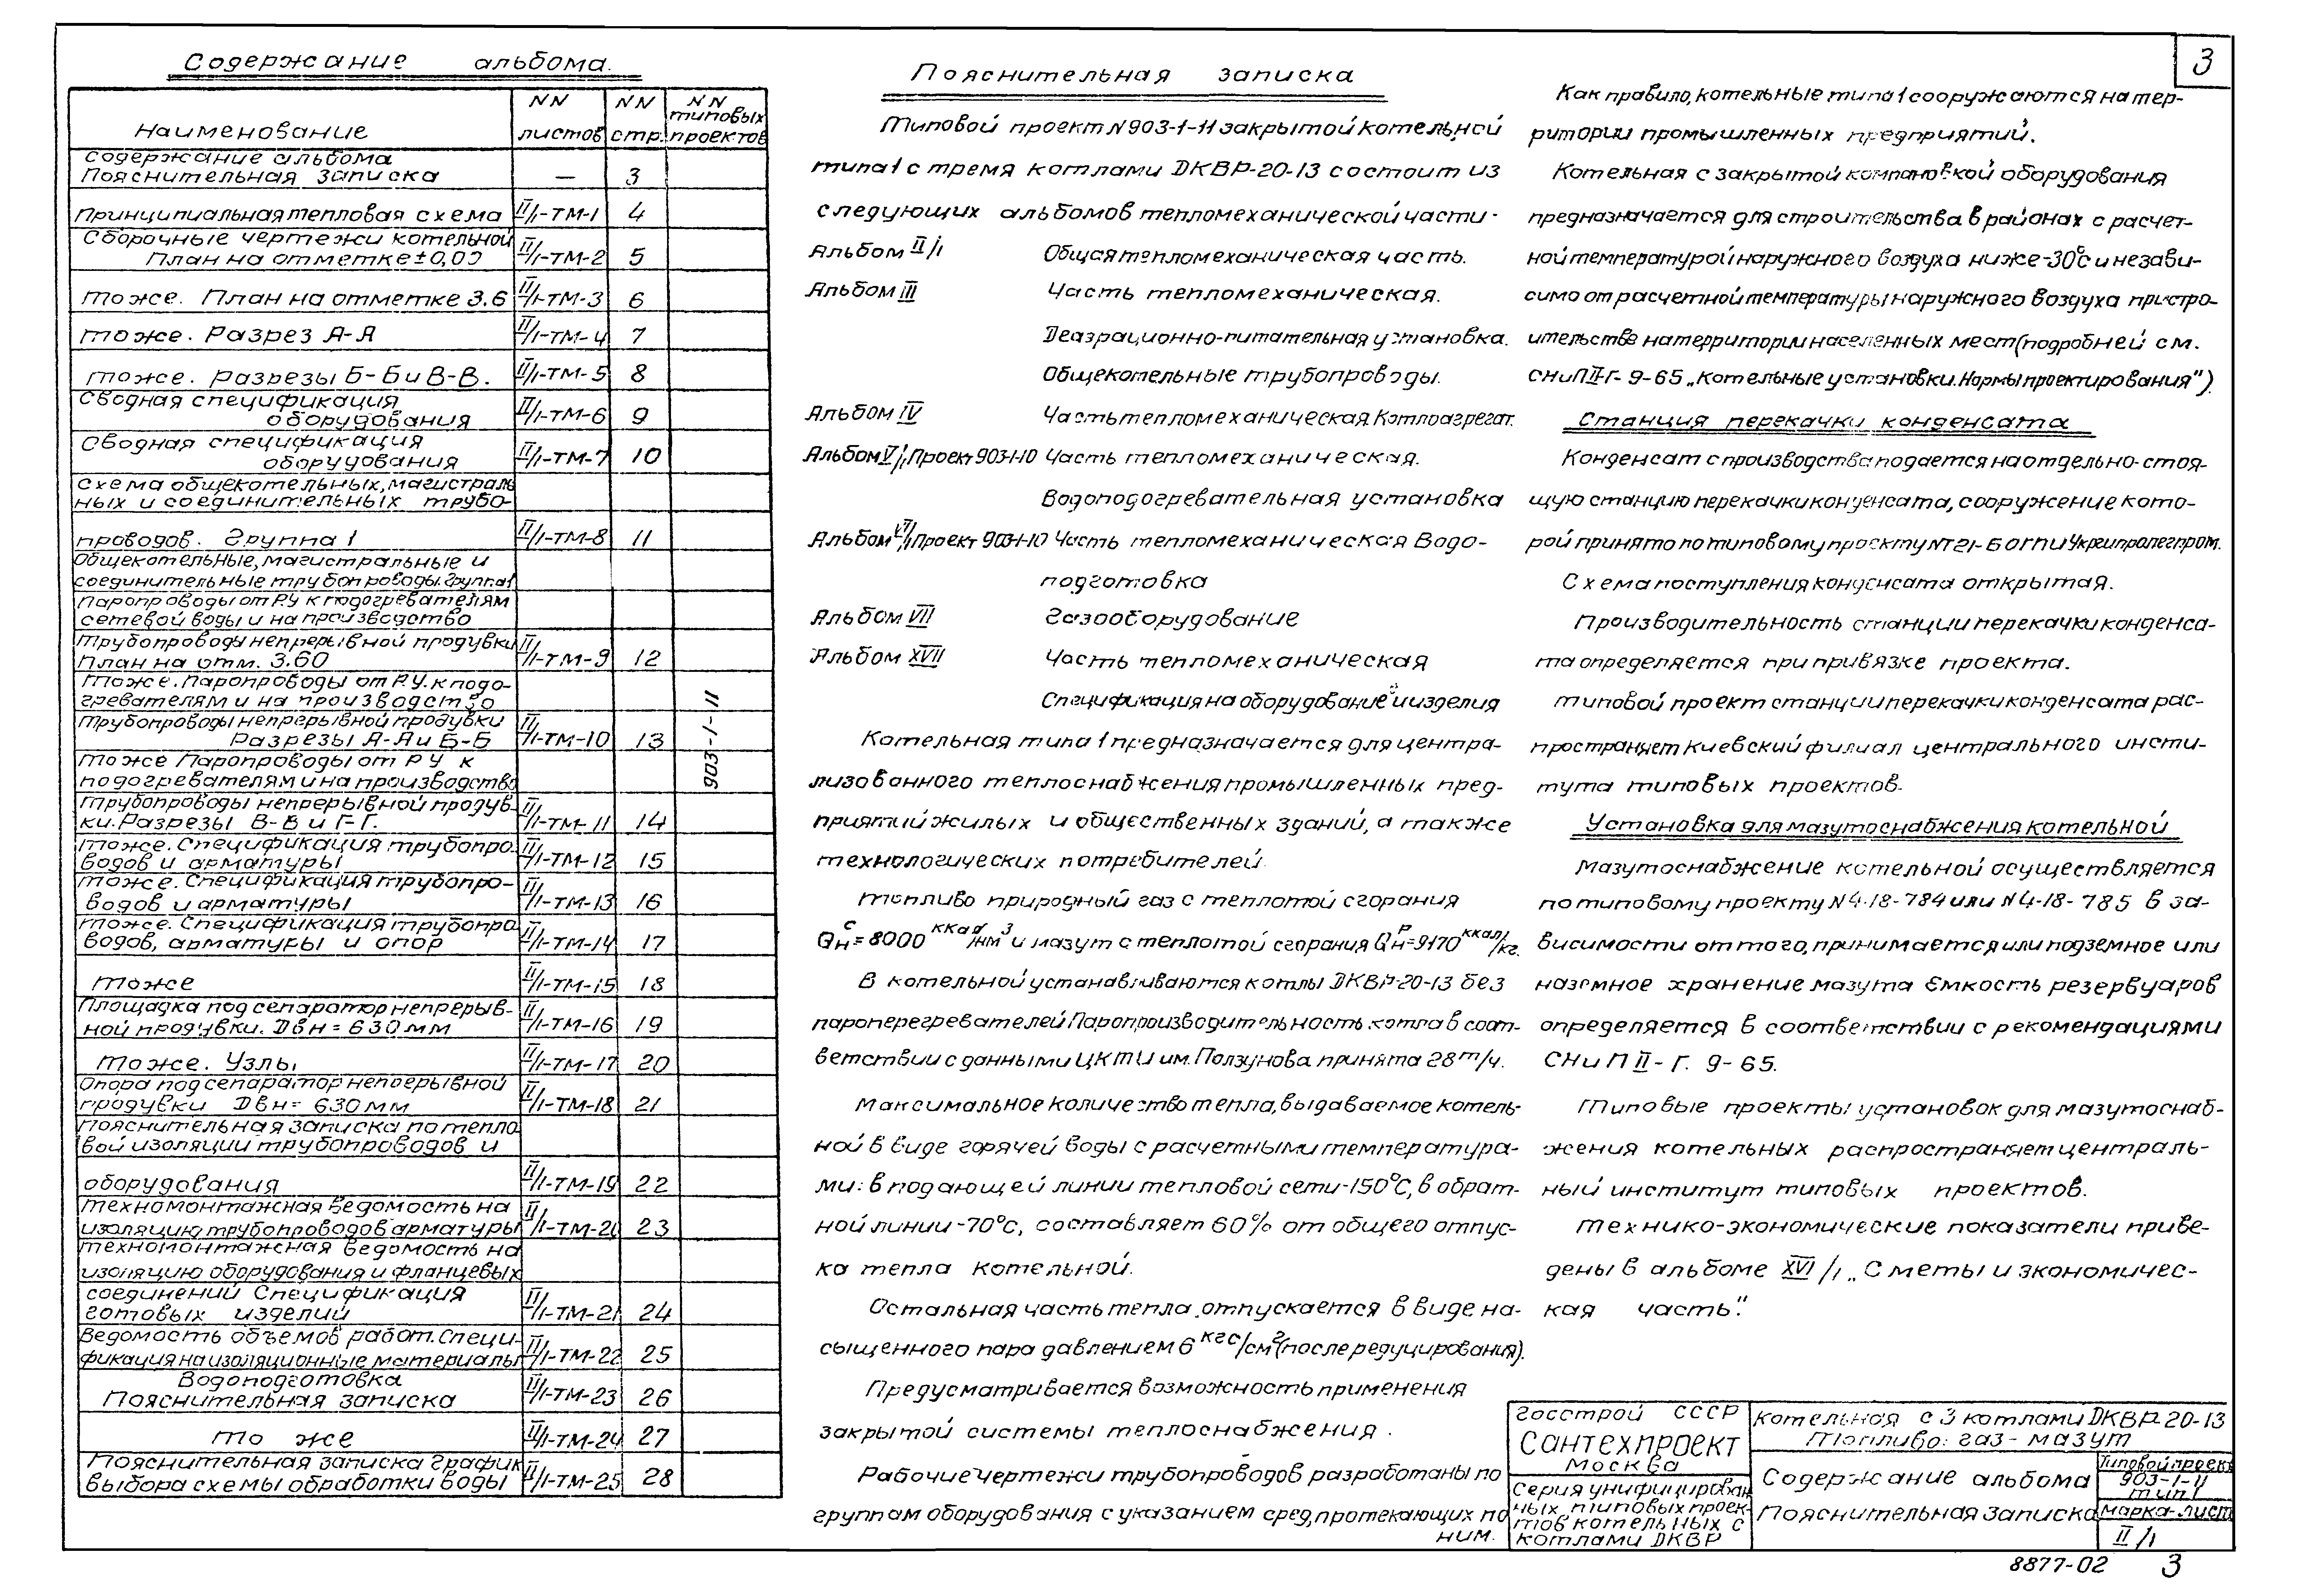 3
Содержание альбома.
Наименование
NN листов
NN стр.
NN типовых проектов
Содержание альбома
Пояснительная записка — 3
Принципиальная тепловая схема II/1-ТМ-1 4
Сборочные чертежи котельной
План на отметке ±0,00 II/1-ТМ-2 5
То же. План на отметке 3.6 II/1-ТМ-3 6
То же. Разрез А-А II/1-ТМ-4 7
То же. Разрезы Б-Б и В-В. II/1-ТМ-5 8
Сводная спецификация
оборудования II/1-ТМ-6 9
Сводная спецификация
оборудования II/1-ТМ-7 10
Схема общекотельных, магистраль
ных и соединительных трубо-
проводов. Группа 1 II/1-ТМ-8 11
Общекотельные, магистральные и
соединительные трубопроводы. Группа 1
Паропроводы от Р.У к подогревателям
сетевой воды и на производство
Трубопроводы непрерывной продувки
План на отм. 3.60 II/1-ТМ-9 12
То же. Паропроводы от Р.У. к подо-
гревателям и на производство
Трубопроводы непрерывной продувки
Разрезы А-А и Б-Б II/1-ТМ-10 13
То же Паропроводы от Р У к
подогревателям и на производство
Трубопроводы непрерывной продув-
ки. Разрезы В-В и Г-Г. II/1-ТМ-11 14
То же. Спецификация трубопро-
водов и арматуры II/1-ТМ-12 15
То же. Спецификация трубопро-
водов и арматуры II/1-ТМ-13 16
То же. Спецификация трубопро
водов, арматуры и опор II/1-ТМ-14 17
То же II/1-ТМ-15 18
Площадка под сепаратор непрерыв-
ной продувки. Двн = 630 мм II/1-ТМ-16 19
То же. Узлы II/1-ТМ-17 20
Опора под сепаратор непрерывной
продувки Двн = 630 мм II/1-ТМ-18 21
Пояснительная записка по тепло
вой изоляции трубопроводов и
оборудования II/1-ТМ-19 22
Техномонтажная ведомость на
изоляцию трубопроводов арматуры II/1-ТМ-20 23
Техномонтажная ведомость на
изоляцию оборудования и фланцевых
соединений Спецификация
готовых изделий II/1-ТМ-21 24
Ведомость объемов работ. Специ-
фикация на изоляционные материалы II/1-ТМ-22 25
Водоподготовка
Пояснительная записка II/1-ТМ-23 26
То же II/1-ТМ-24 27
Пояснительная записка График
выбора схемы обработки воды II/1-ТМ-25 28
903-1-11
Пояснительная записка
Типовой проект N 903-1-11 закрытой котельной
типа 1 с тремя котлами ДКВР-20-13 состоит из
следующих альбомов тепломеханической части.
Альбом II/1 Общая тепломеханическая часть.
Альбом III Часть тепломеханическая.
Деаэрационно-питательная установка.
Общекотельные трубопроводы.
Альбом IV Часть тепломеханическая. Котлоагрегат.
Альбом V/1, Проект 903-1-10 Часть тепломеханическая.
Водоподогревательная установка
Альбом VI/1, Проект 903-1-10 Часть тепломеханическая Водо-
подготовка
Альбом VII Газооборудование
Альбом XVII Часть тепломеханическая
Спецификация на оборудование и изделия
Котельная типа 1 предназначается для центра-
лизованного теплоснабжения промышленных пред-
приятий жилых и общественных зданий, а также
технологических потребителей.
Топливо природный газ с теплотой сгорания
Qнс = 8000 ккал/нм3 и мазут с теплотой сгорания Qнр = 9170 ккал/кг.
В котельной устанавливаются котлы ДКВР-20-13 без
пароперегревателей Паропроизводительность котла в соот-
ветствии с данными ЦКТИ им. Ползунова принята 28 т/ч.
Максимальное количество тепла, выдаваемое котель-
ной в виде горячей воды с расчетными температура-
ми: в подающей линии тепловой сети -150°С, в обрат-
ной линии -70°С, составляет 60% от общего отпус-
ка тепла котельной.
Остальная часть тепла отпускается в виде на-
сыщенного пара давлением 6 кгс/см2 (после редуцирования).
Предусматривается возможность применения
закрытой системы теплоснабжения.
Рабочие чертежи трубопроводов разработаны по
группам оборудования с указанием сред, протекающих по
ним.
Как правило, котельные типа 1 сооружаются на тер-
ритории промышленных предприятий.
Котельная с закрытой компановкой оборудования
предназначается для строительства в районах с расчет-
ной температурой наружного воздуха ниже -30°С и незави-
симо от расчетной температуры наружного воздуха при стро-
ительстве на территории населенных мест (подробней см.
СНиП II-Г. 9-65 „Котельные установки. Нормы проектирования").
Станция перекачки конденсата
Конденсат с производства подается на отдельно-стоя-
щую станцию перекачки конденсата, сооружение кото-
рой принято по типовому проекту NТ21-Б ОГПИ Укргипролегпром.
Схема поступления конденсата открытая.
Производительность станции перекачки конденса-
та определяется при привязке проекта.
Типовой проект станции перекачки конденсата рас-
пространяет Киевский филиал центрального инсти-
тута типовых проектов.
Установка для мазутоснабжения котельной
Мазутоснабжение котельной осуществляется
по типовому проекту N 4-18-784 или N 4-18-785 в за-
висимости от того, принимается или подземное или
наземное хранение мазута Емкость резервуаров
определяется в соответствии с рекомендациями
СНиП II-Г. 9-65.
Типовые проекты установок для мазутоснаб-
жения котельных распространяет централь-
ный институт типовых проектов.
Технико-экономические показатели приве-
дены в альбоме XVI/1 „Сметы и экономичес-
кая часть".
Госстрой СССР
Сантехпроект
Москва
Серия унифицирован
ных типовых проек-
тов котельных с
котлами ДКВР
Котельная с 3 котлами ДКВР-20-13
Топливо: газ-мазут
Содержание альбома
Пояснительная записка
Типовой проект
903-1-11
тип 1
Марка-лист
II/1
8877-02 3